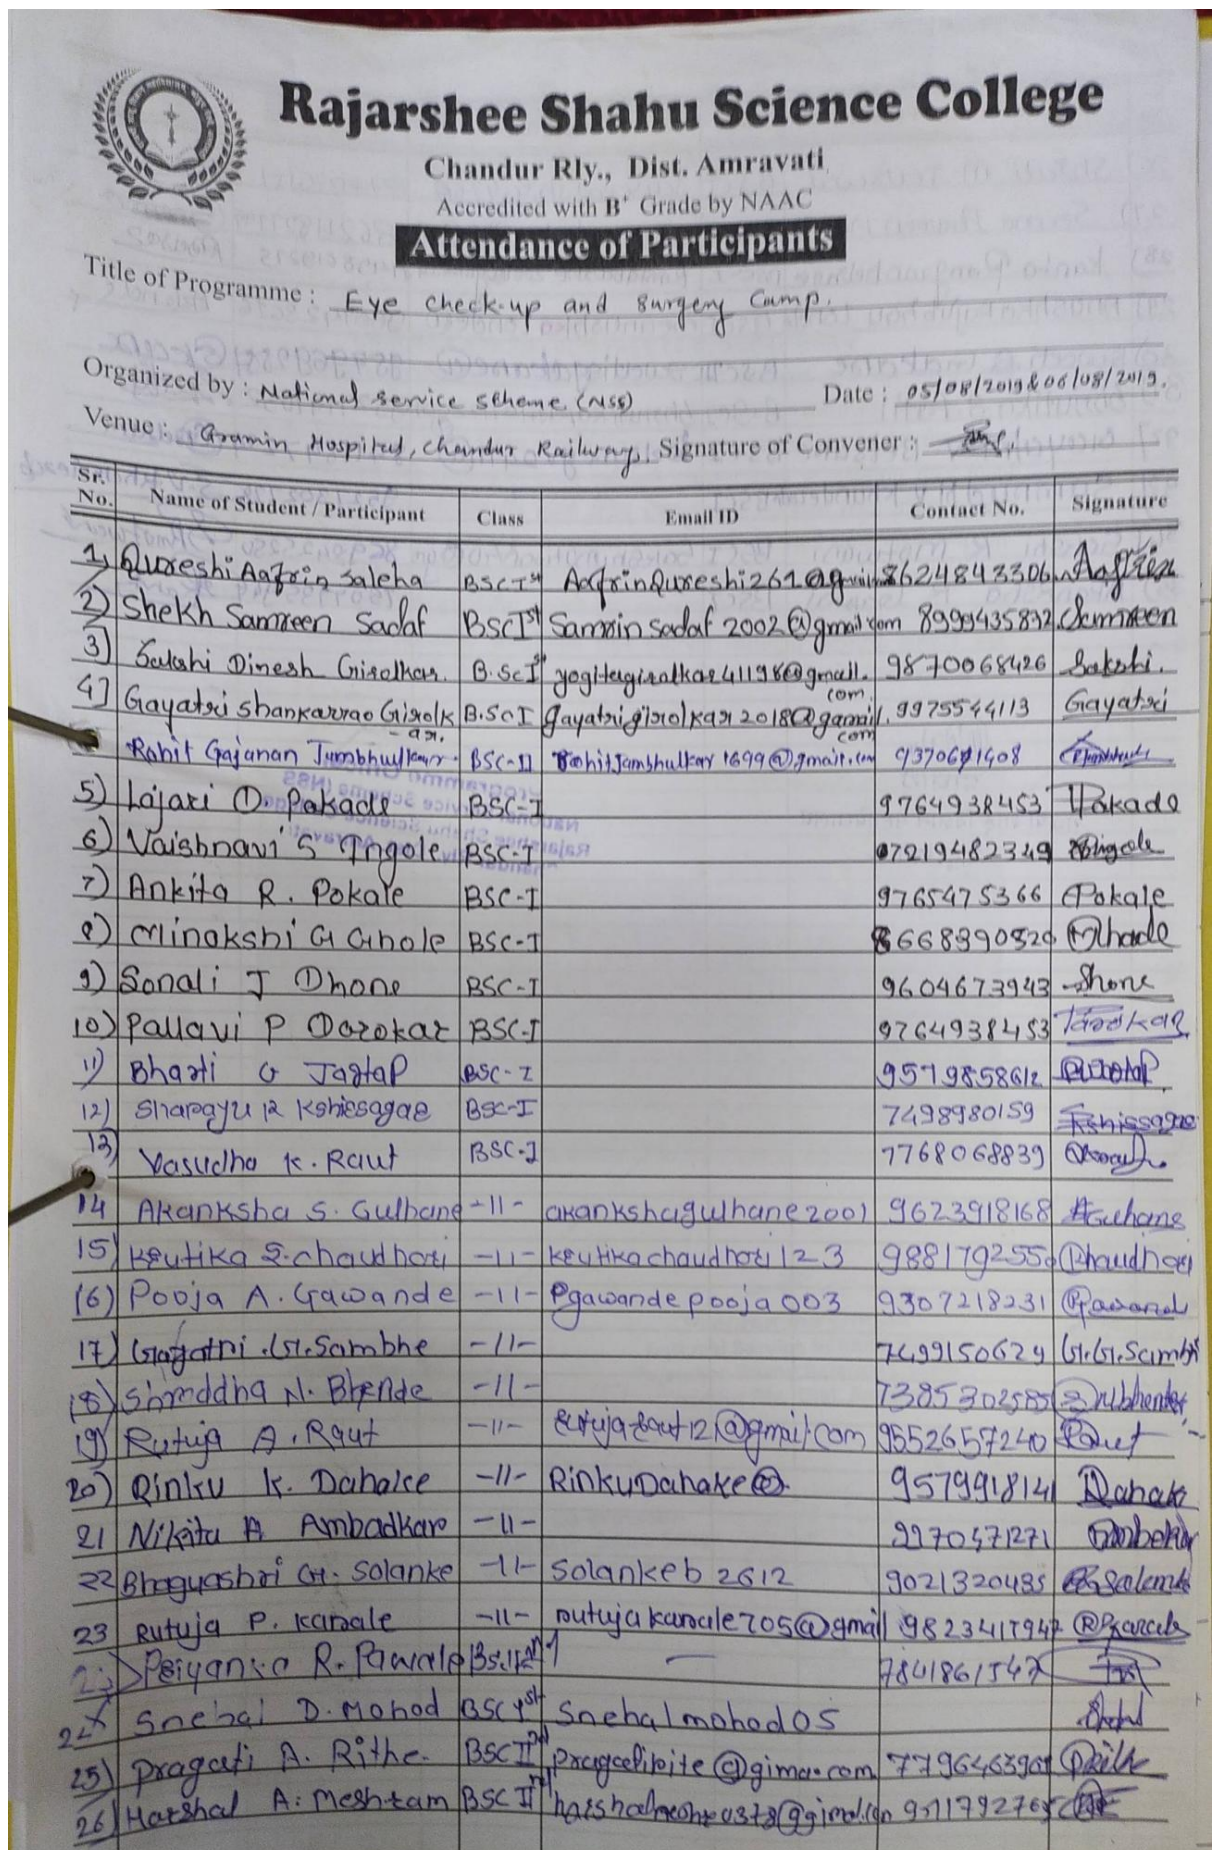 Rajarshee Shahu Science College
Chandur Rly., Dist. Amravati
Accredited with B+ Grade by NAAC
Attendance of Participants
Title of Programme : Eye check-up and surgery Camp.
Organized by : National service scheme (NSS) Date : 05/08/2019 & 06/08/2019.
Venue : Gramin Hospital, Chandur Railway. Signature of Convener :
Sr. No. Name of Student / Participant Class Email ID Contact No. Signature
1, Qureshi Aafrin Saleha BSC Ist AafrinQureshi261@gmail 8624843306 Aafrin
2) Shekh Samreen Sadaf BSc Ist Samrin sadaf 2002@gmail.com 8999435832 Samreen
3] Sakshi Dinesh Girolkar. B.Sc Ist yogitagiralkar41198@gmail.com 9870068426 Sakshi.
4] Gayatri Shankarrao Girolkar. B.Sc I gayatrigirolkar2018@gamail.com 9975544113 Gayatri
Rohit Gajanan Jambhulkar. BSC-II RohitJambhulkar1699@gmail.com 9370671408
5) Lajari D. Pakade BSC-I 9764938453 Pakade
6) Vaishnavi S Ingole BSC-I 07219482349 Ingole
7) Ankita R. Pokale BSC-I 9765475366 Pokale
8) Minakshi G Ghole BSC-I 8668390320
9) Sonali J Dhone BSC-I 9604673943 Dhone
10) Pallavi P Darokar BSC-I 9764938453 Darokar
11) Bharti G Jagtap BSC-I 9579858612
12) Sharayu R Kshirsagar BSC-I 7498980159 Kshirsagar
13) Vasudha K. Raut BSC-I 7768068839
14 Akanksha S. Gulhane -11- akankshagulhane2001 9623918168 AGulhane
15) Krutika S. chaudhari -11- krutikachaudhari123 9881792550 Chaudhari
16) Pooja A. Gawande -11- Pgawandepooja003 9307218231 Gawande
17) Gayatri .G.Sambhe -11- 7499150629 G.G.Sambhe
18) Shraddha N. Bhende -11- 7385302585
19) Rutuja A. Raut -11- rutujaraut12@gmail.com 9552657240 Raut
20) Rinku K. Dahake -11- RinkuDahake@ 9579918141 Dahake
21 Nikita A Ambadkar -11-
22 Bhagyashri G. Solanke -11- Solankeb2612 9021320485
23 Rutuja P. Karale -11- rutujakarale705@gmail
Priyanka R. Pawale
Snehal D. Mohod BSC Ist Snehalmohod05
25) Pragati A. Rithe. BSC IInd
26) Harshal A. Meshram BSC IInd